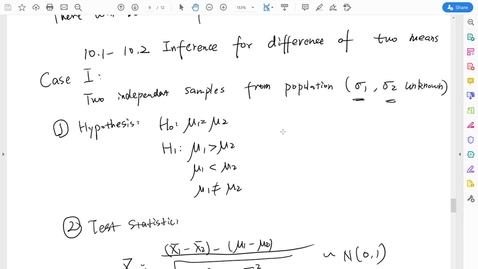 10.1 - 10.2 Inference for difference of two means
Case I:
Two independent samples from population (σ1, σ2 unknown)
① Hypothesis: H0: μ1 = μ2
H1: μ1 > μ2
μ1 < μ2
μ1 ≠ μ2
② Test Statistic:
(X̄1 - X̄2) - (μ1 - μ2)
~ N(0,1)